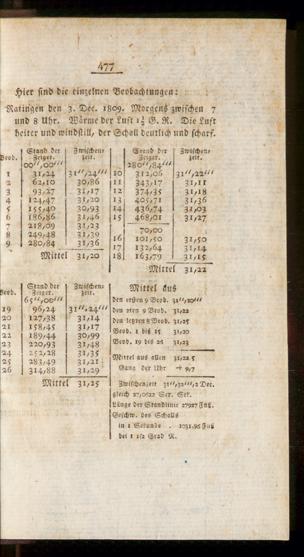 477
Hier sind die einzelnen Beobachtungen:
Ratingen den 3. Dec. 1809. Morgens zwischen 7
und 8 Uhr. Wärme der Luft 1½ G. R. Die Luft
heiter und windstill, der Schall deutlich und scharf.
Beob. Stand der Zeiger. Zwischenzeit.
00'',00'''
1 31,24 31'',24'''
2 62,10 30,86
3 93,27 31,17
4 124,47 31,20
5 155,40 30,93
6 186,86 31,46
7 218,09 31,23
8 249,48 31,39
9 280,84 31,36
Mittel 31,20
Stand der Zeiger. Zwischenzeit.
280'',84'''
10 312,06 31'',22'''
11 343,17 31,11
12 374,35 31,18
13 405,71 31,36
14 436,74 31,03
15 468,01 31,27
70,00
16 101,50 31,50
17 132,64 31,14
18 163,79 31,15
Mittel 31,22
Beob. Stand der Zeiger. Zwischenzeit.
65'',00'''
19 96,24 31'',24'''
20 127,38 31,14
21 158,45 31,17
22 189,44 30,99
23 220,93 31,48
24 252,28 31,35
25 283,49 31,21
26 314,88 31,29
Mittel 31,25
Mittel aus
den ersten 9 Beob. 31'',20'''
den 2ten 9 Beob. 31,22
den letzten 8 Beob. 31,25
Beob. 1 bis 15 31,20
Beob. 19 bis 26 31,23
Mittel aus allen 31,22 5
Gang der Uhr
Zwischenzeit
gleich Sex. Sek.
Länge der Standlinie 17927 Fuß.
Geschw. des Schalls
in 1 Sekunde . 1031,95 Fuß
bei 1 1/2 Grad R.